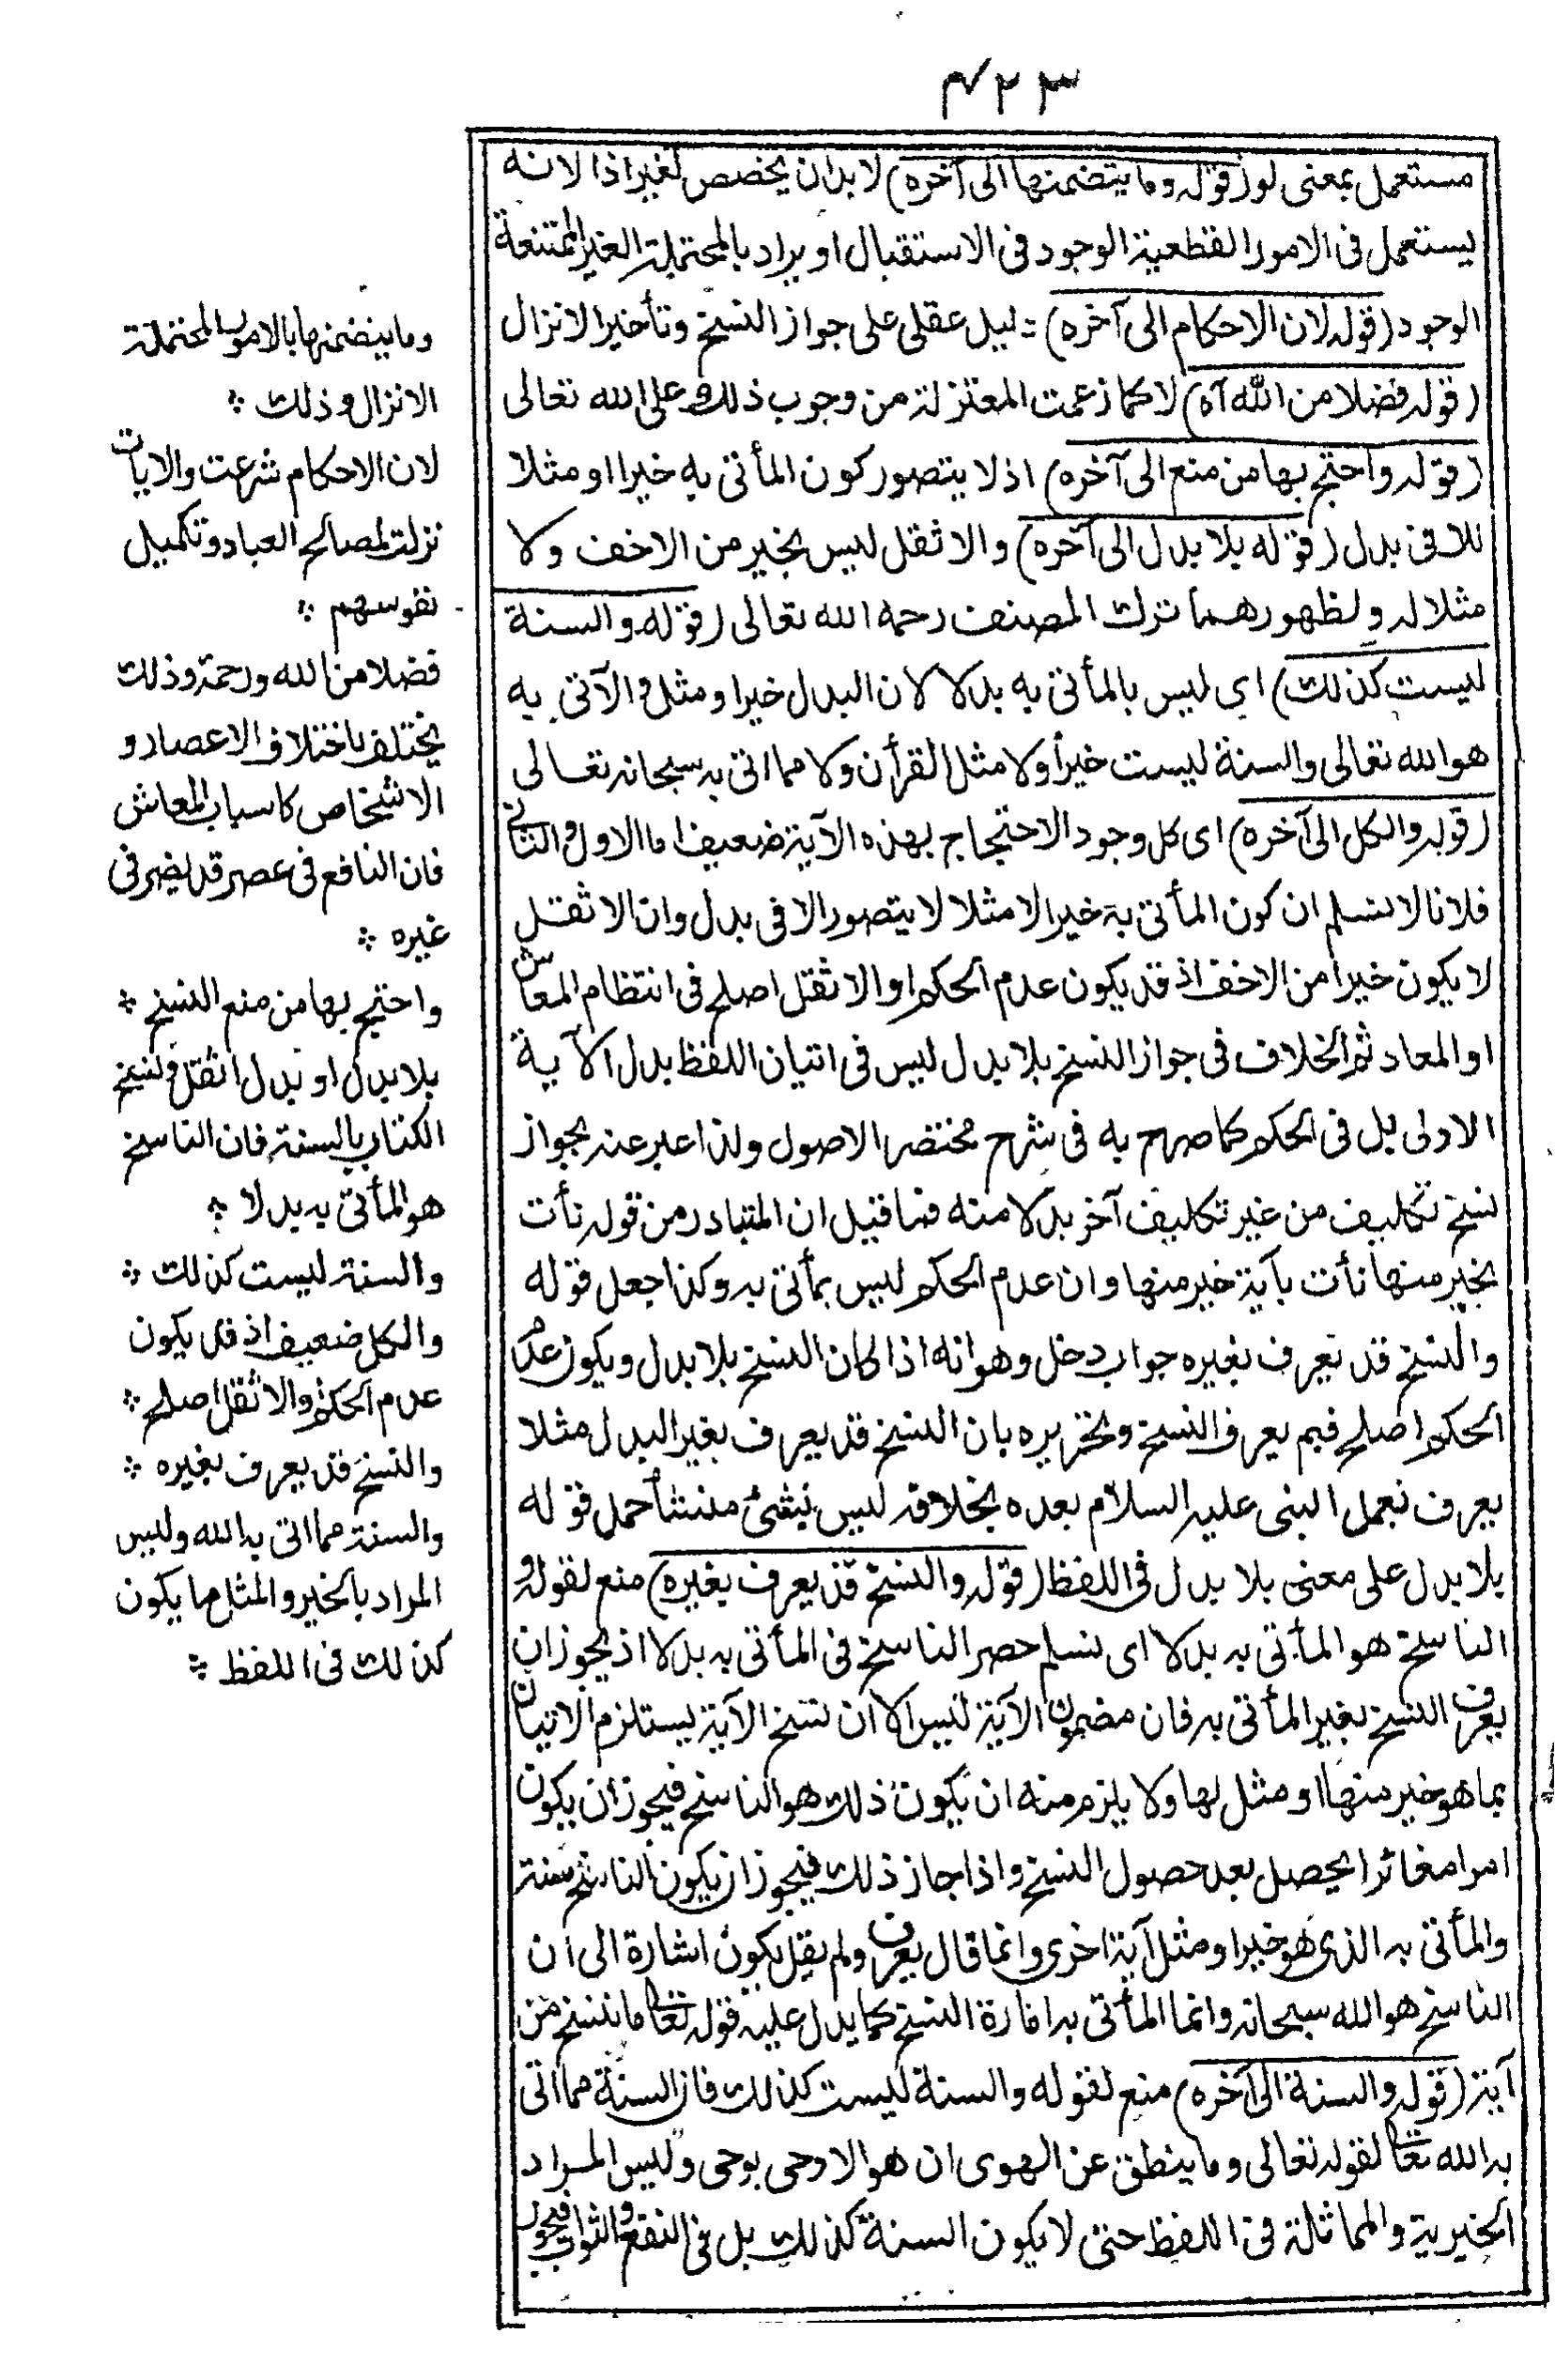 ۴۲۳
مستعمل بمعنى لو (قوله وما يتضمنها الى آخره) لا بد ان يخصص لغير اذا لانه
يستعمل فى الامور القطعية الوجود فى الاستقبال او يراد بالمحتملة الغير الممتنعة
الوجود (قوله لان الاحكام الى آخره) دليل عقلى على جواز النسخ وتأخير الانزال
(قوله فضلا من الله آه) لا كما زعمت المعتزلة من وجوب ذلك على الله تعالى
(قوله واحتج بها من منع الى آخره) اذ لا يتصور كون المأتى به خيرا او مثلا
للا فى بدل (قوله بلا بدل الى آخره) والاثقل ليس بخير من الاخف ولا
مثلا له ولظهورهما ترك المصنف رحمه الله تعالى (قوله والسنة
ليست كذلك) اى ليس بالمأتى به بدلا لان البدل خيرا ومثل والآتى به
هو الله تعالى والسنة ليست خيرا ولا مثل القرأن ولا مما اتى به سبحانه تعالى
(قوله والكل الى آخره) اى كل وجود الاحتجاج بهذه الآية ضعيف اما الاول والثانى
فلانا لا نسلم ان كون المأتى به خيرا لا مثلا لا يتصور الا فى بدل وان الاثقل
لا يكون خيرا من الاخف اذ قد يكون عدم الحكم او الاثقل اصلح فى انتظام المعاش
او المعاد ثم الخلاف فى جواز النسخ بلا بدل ليس فى اتيان اللفظ بدل الآية
الاولى بل فى الحكم كما صرح به فى شرح مختصر الاصول ولذا عبر عنه بجواز
نسخ تكليف من غير تكليف آخر بدلا منه فما قيل ان المتبادر من قوله نأت
بخير منها نأت بآية خير منها وان عدم الحكم ليس بمأتى به وكذا جعل قوله
والنسخ قد يعرف بغيره جواب دخل وهو انه اذا كان النسخ بلا بدل ويكون عدم
الحكم اصلح فبم يعرف النسخ وتحريره بان النسخ قد يعرف بغير البدل مثلا
يعرف بعمل النبى عليه السلام بعده بخلافه ليس بشئ منشأ حمل قوله
بلا بدل على معنى بلا بدل فى اللفظ (قوله والنسخ قد يعرف بغيره) منع لقوله و
الناسخ هو المأتى به بدلا اى نسلم حصر الناسخ فى المأتى به بدلا اذ يجوز ان
يعرف النسخ بغير المأتى به فان مضمون الآية ليس الا ان نسخ الآية يستلزم الاتيان
بما هو خير منها او مثل لها ولا يلزم منه ان يكون ذلك هو الناسخ فيجوز ان يكون
امرا مغائرا يحصل بعد حصول النسخ واذا جاز ذلك فيجوز ان يكون الناسخ سنة
والمأتى به الذى هو خير او مثل آية اخرى وانما قال يعرف ولم يقل يكون اشارة الى ان
الناسخ هو الله سبحانه وانما المأتى به امارة النسخ كما يدل عليه قوله تعا ما ننسخ من
آية (قوله والسنة الى آخره) منع لقوله والسنة ليست كذلك فان السنة مما اتى
به الله تعا لقوله تعالى وما ينطق عن الهوى ان هو الا وحى يوحى وليس المراد
الخيرية والمماثلة فى اللفظ حتى لا يكون السنة كذلك بل فى النفع والثواب فيجوز
وما يتضمنها بالامور المحتملة
الانزال وذلك ⁘
لان الاحكام شرعت والايات
نزلت لمصالح العباد وتكميل
نفوسهم ⁘
فضلا من الله ورحمة وذلك
يختلف باختلاف الاعصار و
الاشخاص كاسباب المعاش
فان النافع فى عصر قد يضر فى
غيره ⁘
واحتج بها من منع النسخ ⁘
بلا بدل او بدل اثقل ونسخ
الكتاب بالسنة فان الناسخ
هو المأتى به بدلا ⁘
والسنة ليست كذلك ⁘
والكل ضعيف اذ قد يكون
عدم الحكم والاثقل اصلح ⁘
والنسخ قد يعرف بغيره ⁘
والسنة مما اتى به الله وليس
المراد بالخير والمثل ما يكون
كذلك فى اللفظ ⁘